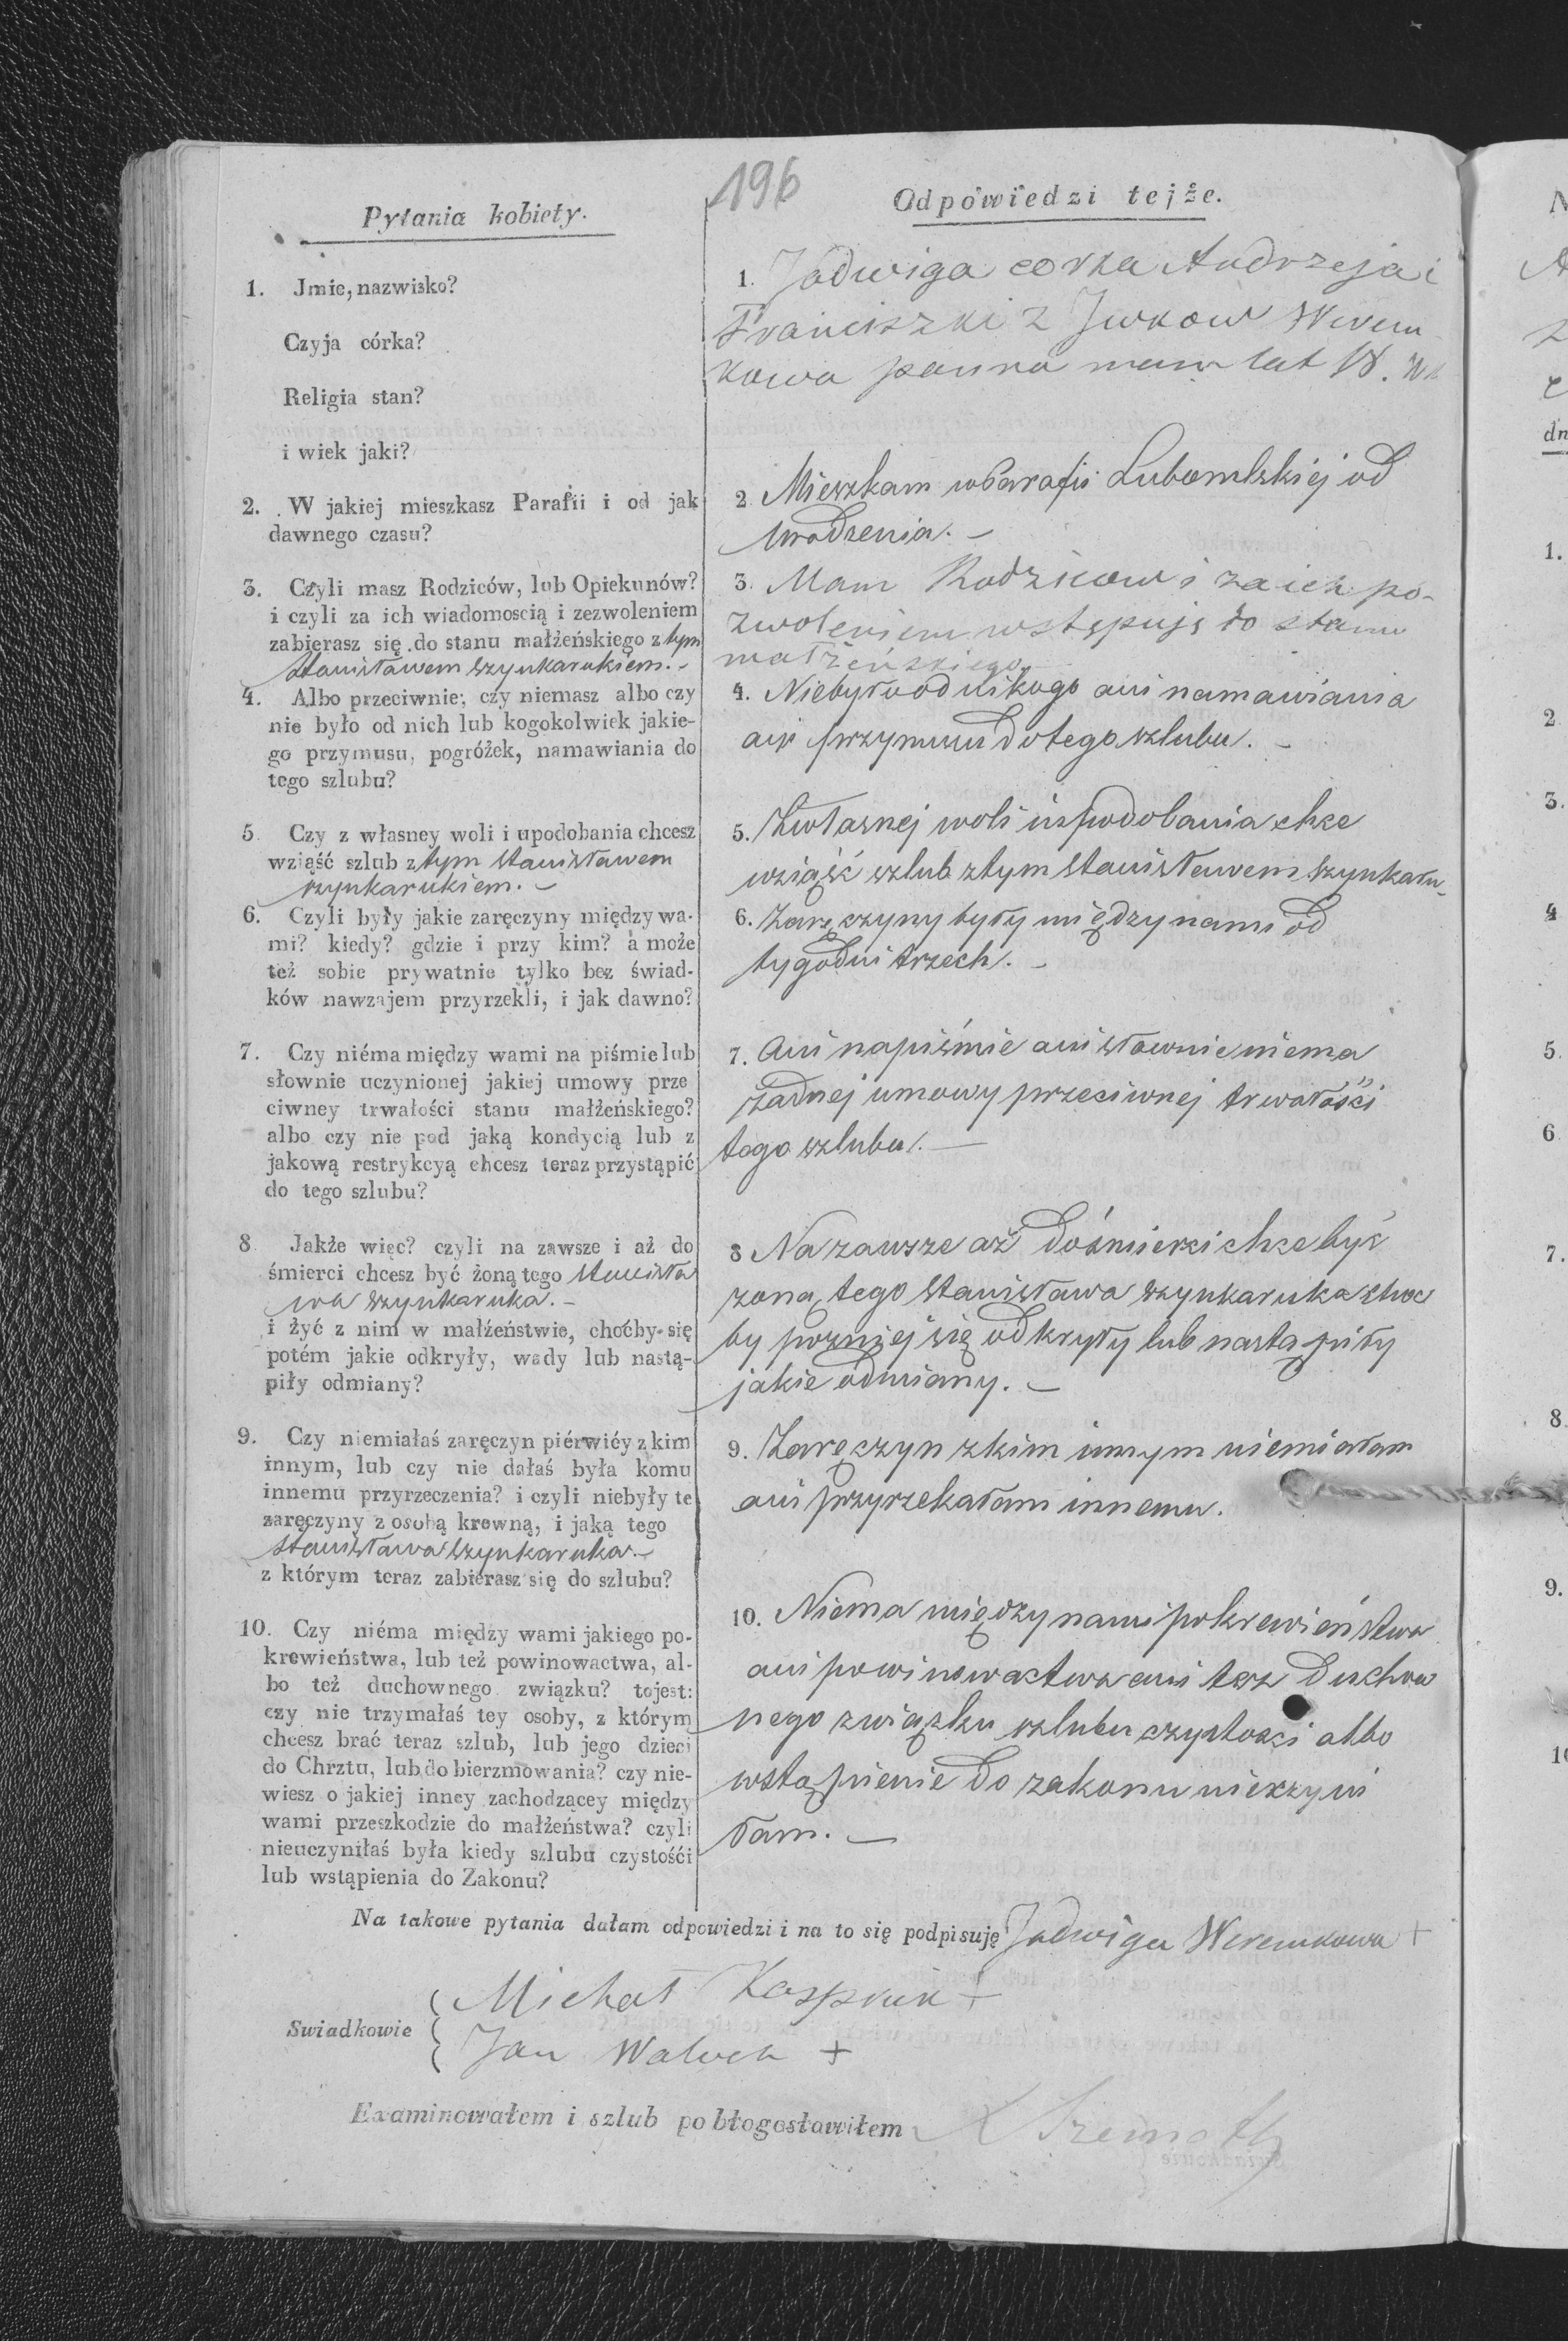 196
Pytania kobiety.
1. Jmie, nazwisko?
Czyja córka?
Religia stan?
i wiek jaki?
2. W jakiej mieszkasz Parafii i od jak
dawnego czasu?
3. Czyli masz Rodziców, lub Opiekunów?
i czyli za ich wiadomoscią i zezwoleniem
zabierasz się do stanu małżeńskiego z tym
Stanisławem Szynkarukiem. -
4. Albo przeciwnie; czy niemasz albo czy
nie było od nich lub kogokolwiek jakie-
go przymusu, pogróżek, namawiania do
tego szlubu?
5. Czy z własney woli i upodobania chcesz
wziąść szlub z tym Stanisławem
Szynkarukiem. -
6. Czyli były jakie zaręczyny między wa-
mi? kiedy? gdzie i przy kim? a może
też sobie prywatnie tylko bez świad-
ków nawzajem przyrzekli, i jak dawno?
7. Czy niéma między wami na piśmie lub
słownie uczynionej jakiej umowy prze
ciwney trwałości stanu małżeńskiego?
albo czy nie pod jaką kondycią lub z
jakową restrykcyą chcesz teraz przystąpić
do tego szlubu?
8 Jakże więc? czyli na zawsze i aż do
śmierci chcesz być żoną tego Stanisła
wa Szynkaruka. -
i żyć z nim w małżeństwie, choćby się
potém jakie odkryły, wady lub nastą-
piły odmiany?
9. Czy niemiałaś zaręczyn piérwiéy z kim
innym, lub czy nie dałaś była komu
innemu przyrzeczenia? i czyli niebyły te
zaręczyny z osobą krewną, i jaką tego
Stanisława Szynkaruka. -
z którym teraz zabierasz się do szlubu?
10. Czy niéma między wami jakiego po-
krewieństwa, lub też powinowactwa, al-
bo też duchownego związku? tojest:
czy nie trzymałaś tey osoby, z którym
chcesz brać teraz szlub, lub jego dzieci
do Chrztu, lub do bierzmowania? czy nie-
wiesz o jakiej inney zachodzącey między
wami przeszkodzie do małżeństwa? czyli
nieuczyniłaś była kiedy szlubu czystośći
lub wstąpienia do Zakonu?
Odpowiedzi tejże.
1. Jadwiga corka Andrzeja i
Franciszki z Jwkow Werem
kowa panna mam lat 18.
2 Mieszkam w Parafii Lubomlskiej od
urodzenia. -
3. Mam Rodzicow i za ich po-
zwoleniem wstępuję do stanu
małżeńskiego
4. Niebyło od nikogo ani namawiania
ani przymusu do tego szlubu. -
5. Zwłasnej woli i upodobania chce
wziąść szlub ztym Stanisławem Szynkaru-
6. Zaręczyny były między nami od
tygodni trzech. -
7. Ani napiśmie ani słownie niema
żadnej umowy przeciwnej trwałości
tego szlubu. -
8 Na zawsze aż do śmierci chce być
zoną tego Stanisława Szynkaruka choc
by pozniej się odkryły lub nastąpiły
jakie odmiany. -
9. Zaręczyn zkim innym niemiałam
ani przyrzekałam innemu.
10. Niema między nami pokrewieństwa
ani powinowactwa ani tez duchow
nego związku szlubu czystosci albo
wstąpienie do zakonu nieczyni
łam. -
Na takowe pytania dałam odpowiedzi i na to się podpisuję Jadwiga Weremkowa +
Swiadkowie
Michał Kaspruk +
Jan Waluch +
Examinowałem i szlub pobłogosławiłem
1.
2
3.
4
5.
6
7.
8.
9.